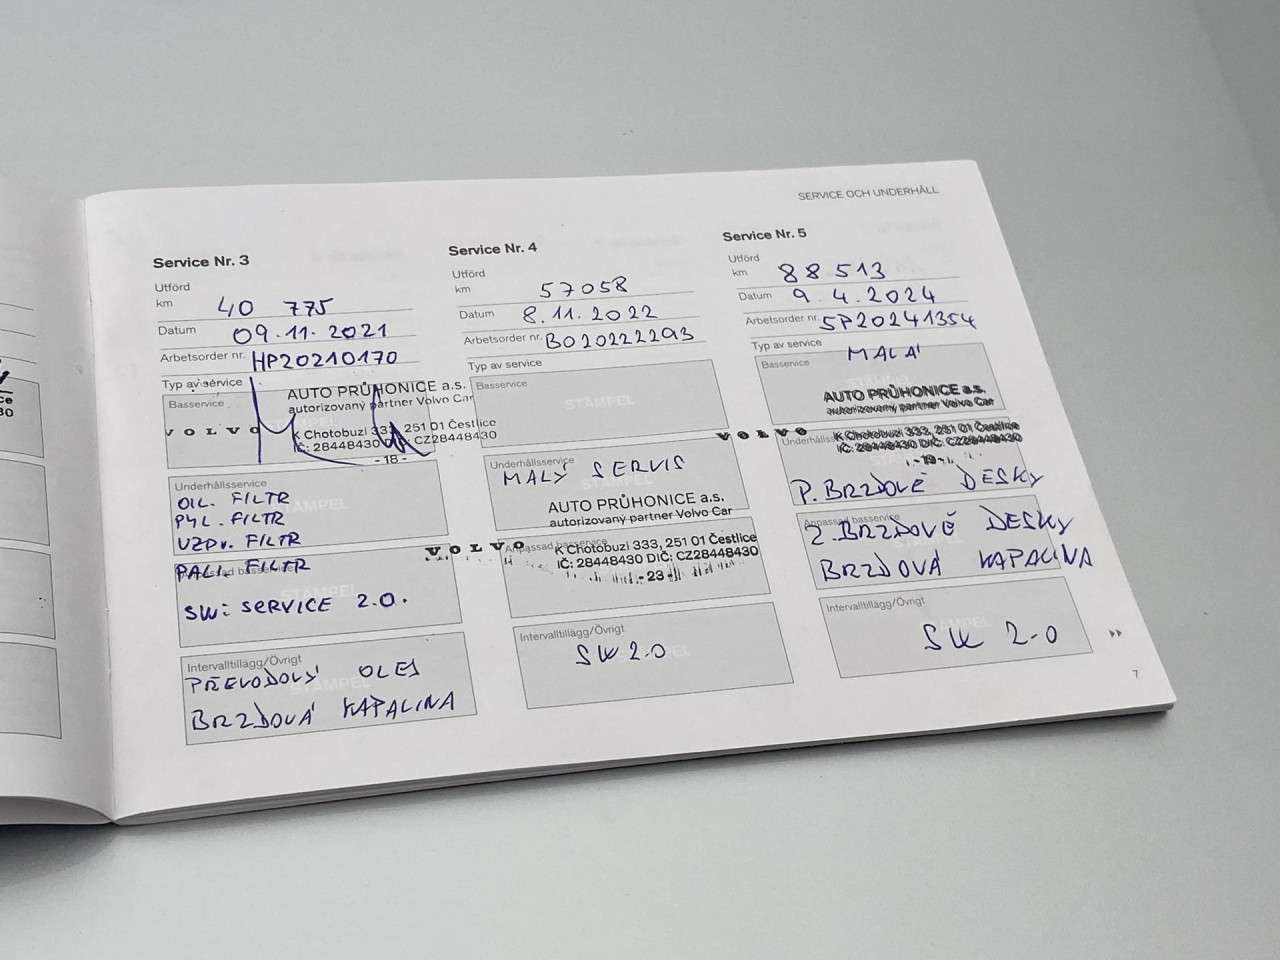 SERVICE OCH UNDERHÅLL
Service Nr. 3
Utförd
km 40 775
Datum 09.11.2021
Arbetsorder nr. HP20210170
Typ av service
Basservice
AUTO PRŮHONICE a.s.
autorizovaný partner Volvo Car
VOLVO
K Chotobuzi 333, 251 01 Čestlice
IČ: 28448430 DIČ: CZ28448430
- 18 -
STÄMPEL
Underhållsservice
OIL. FILTR
PYL. FILTR
VZDV. FILTR
PALI. FILTR
Anpassad basservice
STÄMPEL
SW: SERVICE 2.0.
Intervalltillägg/Övrigt
STÄMPEL
PŘEVODOVÝ OLEJ
BRZDOVÁ KAPALINA
Service Nr. 4
Utförd
km 57058
Datum 8.11.2022
Arbetsorder nr. BO20222293
Typ av service
Basservice
STÄMPEL
Underhållsservice
MALÝ SERVIS
AUTO PRŮHONICE a.s.
autorizovaný partner Volvo Car
VOLVO
Anpassad basservice
K Chotobuzi 333, 251 01 Čestlice
IČ: 28448430 DIČ: CZ28448430
- 23 -
Intervalltillägg/Övrigt
SW 2.0
Service Nr. 5
Utförd
km 88513
Datum 9.4.2024
Arbetsorder nr. SP20241354
Typ av service
MALÁ
Basservice
AUTO PRŮHONICE a.s.
autorizovaný partner Volvo Car
VOLVO
Underhållsservice
K Chotobuzi 333, 251 01 Čestlice
IČ: 28448430 DIČ: CZ28448430
- 19 -
P. BRZDOVÉ DESKY
Anpassad basservice
Z. BRZDOVÉ DESKY
BRZDOVÁ KAPALINA
Intervalltillägg/Övrigt
SW 2-0
7